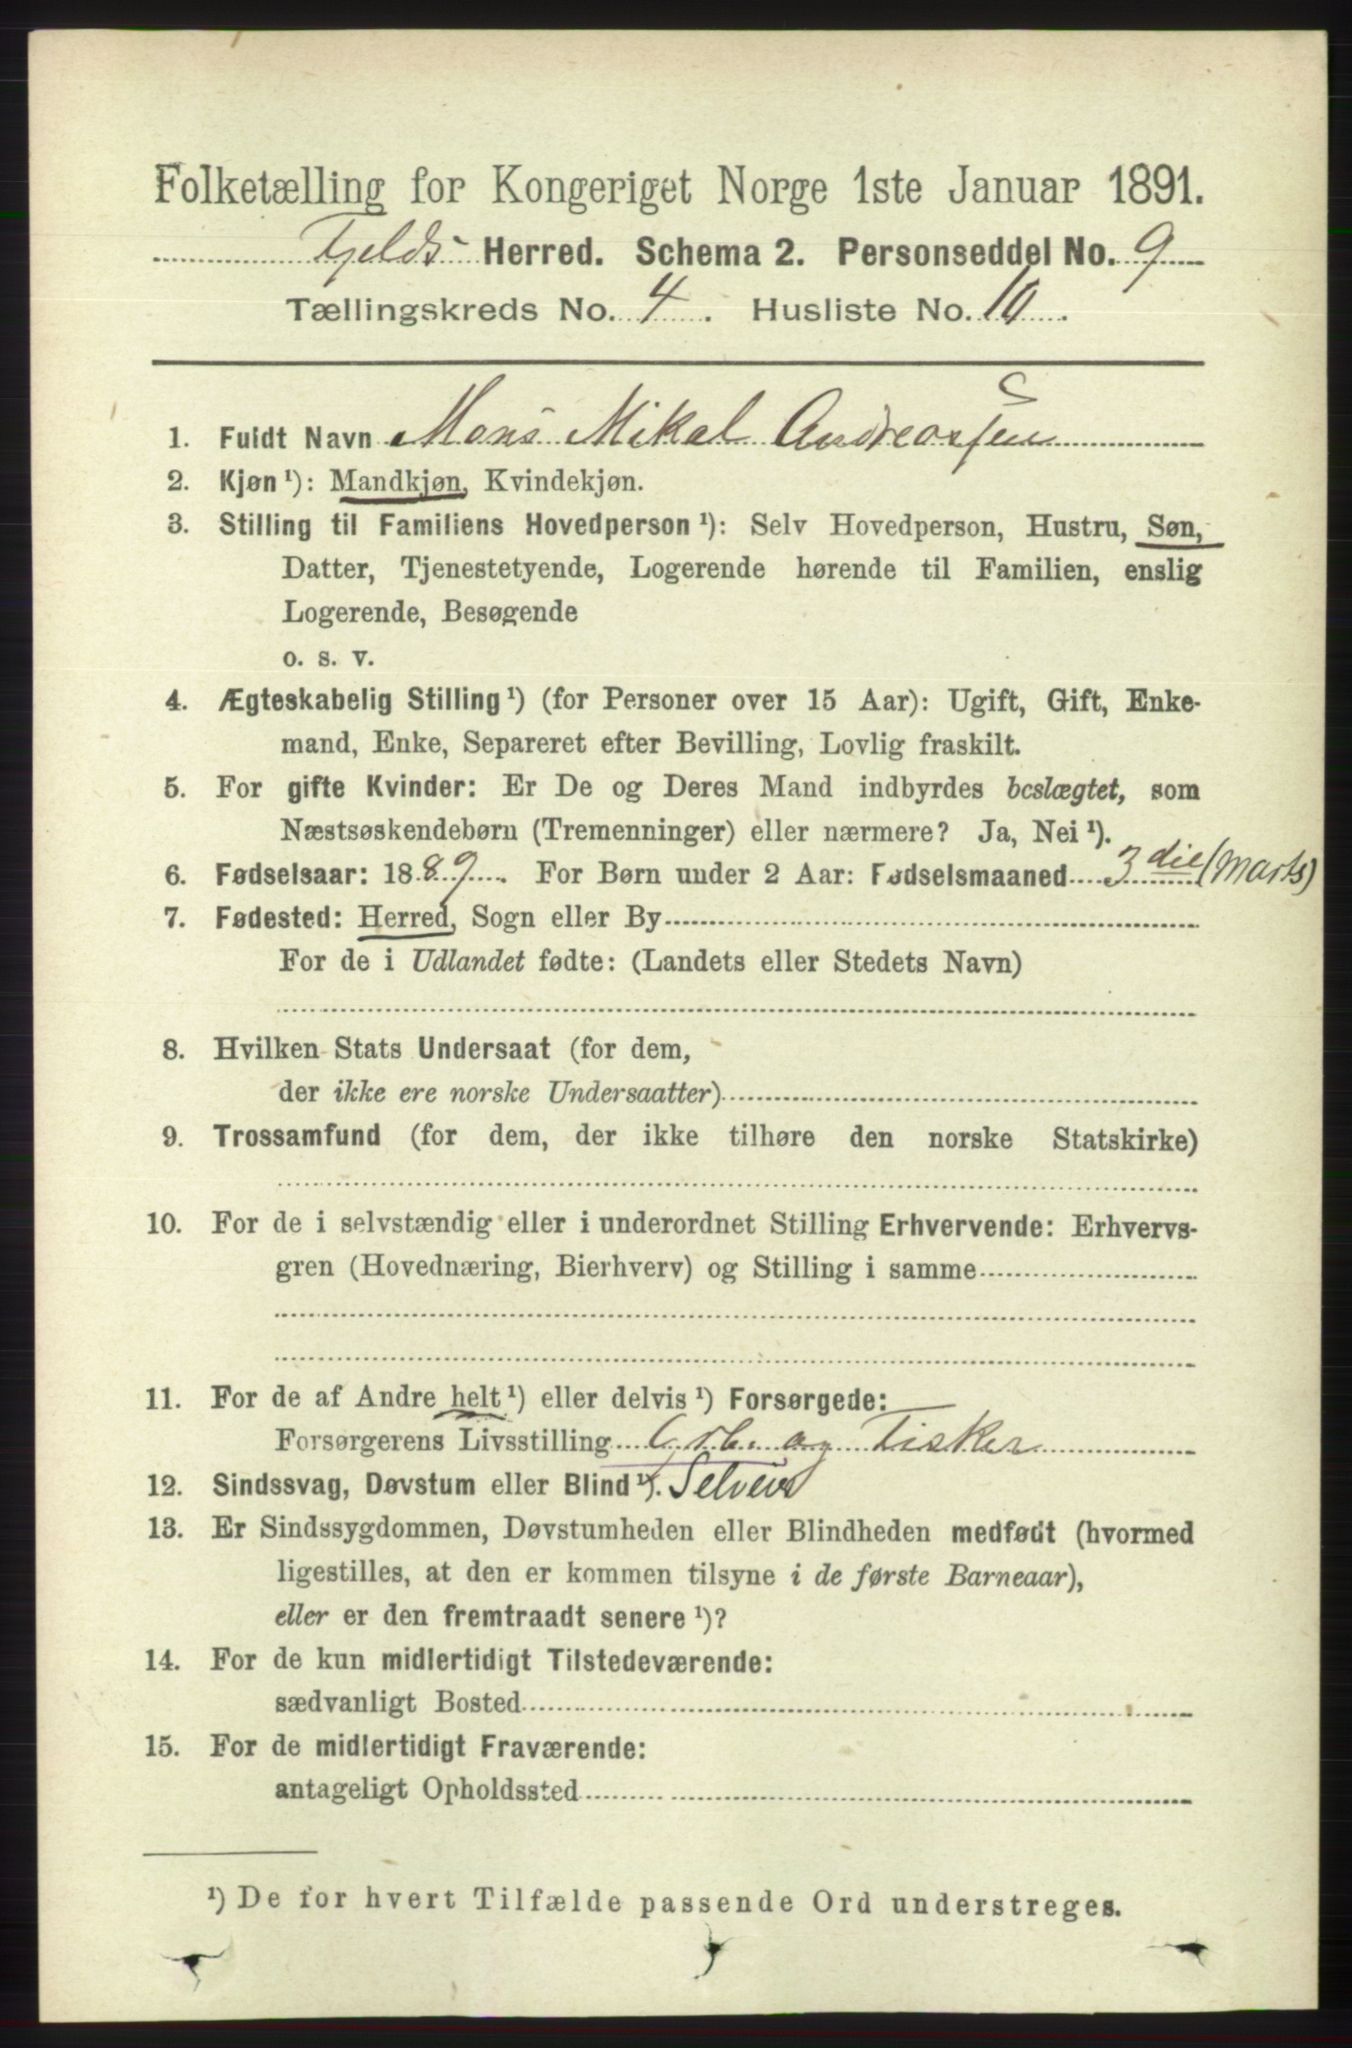 Folketælling for Kongeriget Norge 1ste Januar 1891.
Fjelds Herred. Schema 2. Personseddel No. 9
Tællingskreds No. 4. Husliste No. 10.
1. Fuldt Navn Mons Mikal Andreassen
2. Kjøn ¹): Mandkjøn, Kvindekjøn.
3. Stilling til Familiens Hovedperson ¹): Selv Hovedperson, Hustru, Søn,
Datter, Tjenestetyende, Logerende hørende til Familien, enslig
Logerende, Besøgende
o. s. v.
4. Ægteskabelig Stilling ¹) (for Personer over 15 Aar): Ugift, Gift, Enke-
mand, Enke, Separeret efter Bevilling, Lovlig fraskilt.
5. For gifte Kvinder: Er De og Deres Mand indbyrdes beslægtet, som
Næstsøskendebørn (Tremenninger) eller nærmere? Ja, Nei ¹).
6. Fødselsaar: 1889. For Børn under 2 Aar: Fødselsmaaned 3die (Marts)
7. Fødested: Herred, Sogn eller By
For de i Udlandet fødte: (Landets eller Stedets Navn)
8. Hvilken Stats Undersaat (for dem,
der ikke ere norske Undersaatter)
9. Trossamfund (for dem, der ikke tilhøre den norske Statskirke)
10. For de i selvstændig eller i underordnet Stilling Erhvervende: Erhvervs-
gren (Hovednæring, Bierhverv) og Stilling i samme
11. For de af Andre helt ¹) eller delvis ¹) Forsørgede:
Forsørgerens Livsstilling og Fisker
12. Sindssvag, Døvstum eller Blind ¹). Selveier
13. Er Sindssygdommen, Døvstumheden eller Blindheden medfødt (hvormed
ligestilles, at den er kommen tilsyne i de første Barneaar),
eller er den fremtraadt senere ¹)?
14. For de kun midlertidigt Tilstedeværende:
sædvanligt Bosted
15. For de midlertidigt Fraværende:
antageligt Opholdssted
¹) De for hvert Tilfælde passende Ord understreges.